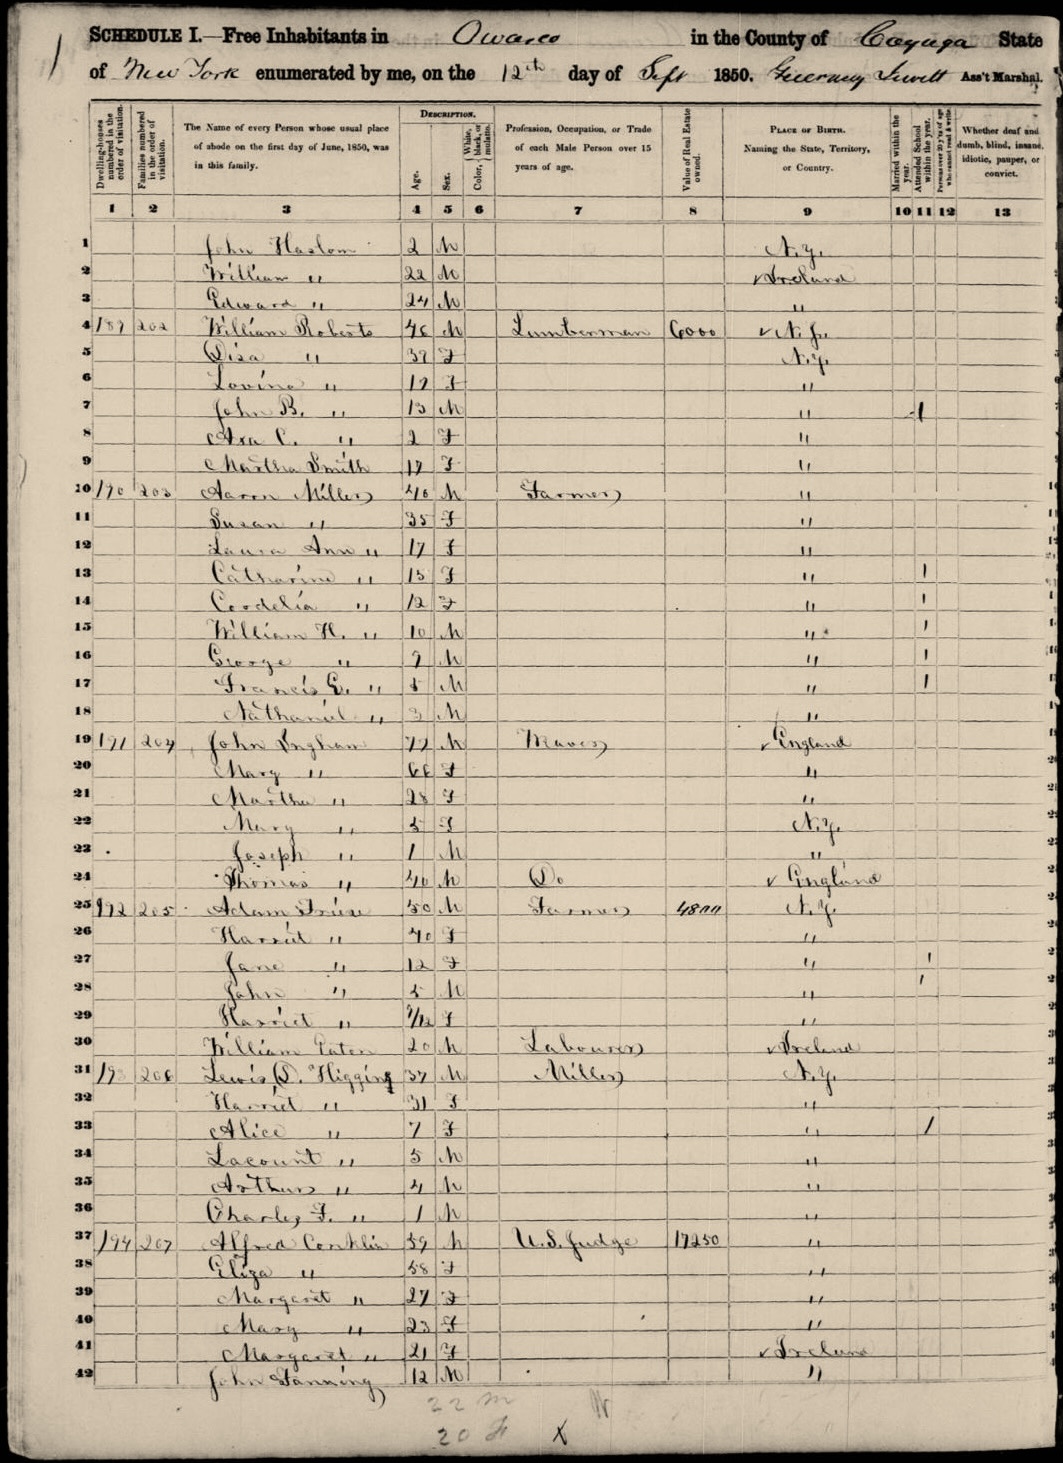 SCHEDULE I.—Free Inhabitants in Owasco in the County of Cayuga State
of New York enumerated by me, on the 12th day of Sept 1850. Ass't Marshal.
DESCRIPTION.
Dwelling-houses numbered in the order of visitation.
Families numbered in the order of visitation.
The Name of every Person whose usual place of abode on the first day of June, 1850, was in this family.
Age.
Sex.
Color, { White, black, or mulatto.
Profession, Occupation, or Trade of each Male Person over 15 years of age.
Value of Real Estate owned.
PLACE OF BIRTH. Naming the State, Territory, or Country.
Married within the year.
Attended School within the year.
Persons over 20 y'rs of age who cannot read & write.
Whether deaf and dumb, blind, insane, idiotic, pauper, or convict.
1 2 3 4 5 6 7 8 9 10 11 12 13
1 John Haslom 2 M N.Y.
2 William " 22 M Ireland
3 Edward " 24 M "
4 189 202 William Roberts 46 M Lumberman 6000 N.J.
5 " 39 F N.Y.
6 Lovina " 19 F "
7 John B. " 13 M " 1
8 C. " 2 F "
9 Martha Smith 19 F "
10 190 203 Aaron Miller 40 M Farmer "
11 Susan " 35 F "
12 Laura Ann " 17 F "
13 Catharine " 15 F " 1
14 Cordelia " 12 F " 1
15 William H. " 10 M " 1
16 George " 7 M " 1
17 Francis E. " 5 M " 1
18 Nathaniel " 3 M "
19 191 204 John Ingham 77 M England
20 Mary " 66 F "
21 Martha " 28 F "
22 Mary " 5 F N.Y.
23 Joseph " 1 M "
24 Thomas " 40 M Do England
25 192 205 Adam 50 M Farmer 4800 N.Y.
26 Harriet " 40 F "
27 Jane " 12 F " 1
28 John " 5 M " 1
29 Harriet " /12 F "
30 William 20 M Labourer Ireland
31 193 206 Lewis D. Higgins 37 M Miller N.Y.
32 Harriet " 31 F "
33 Alice " 7 F " 1
34 Lacount " 5 M "
35 Arthur " 4 M "
36 Charles F. " 1 M "
37 194 207 Alfred Conklin 59 M U.S. Judge 17250 "
38 Eliza " 58 F "
39 Margaret " 27 F "
40 Mary " 23 F "
41 Margaret " 21 F Ireland
42 John Fanning 12 M "
22 m
20 F X